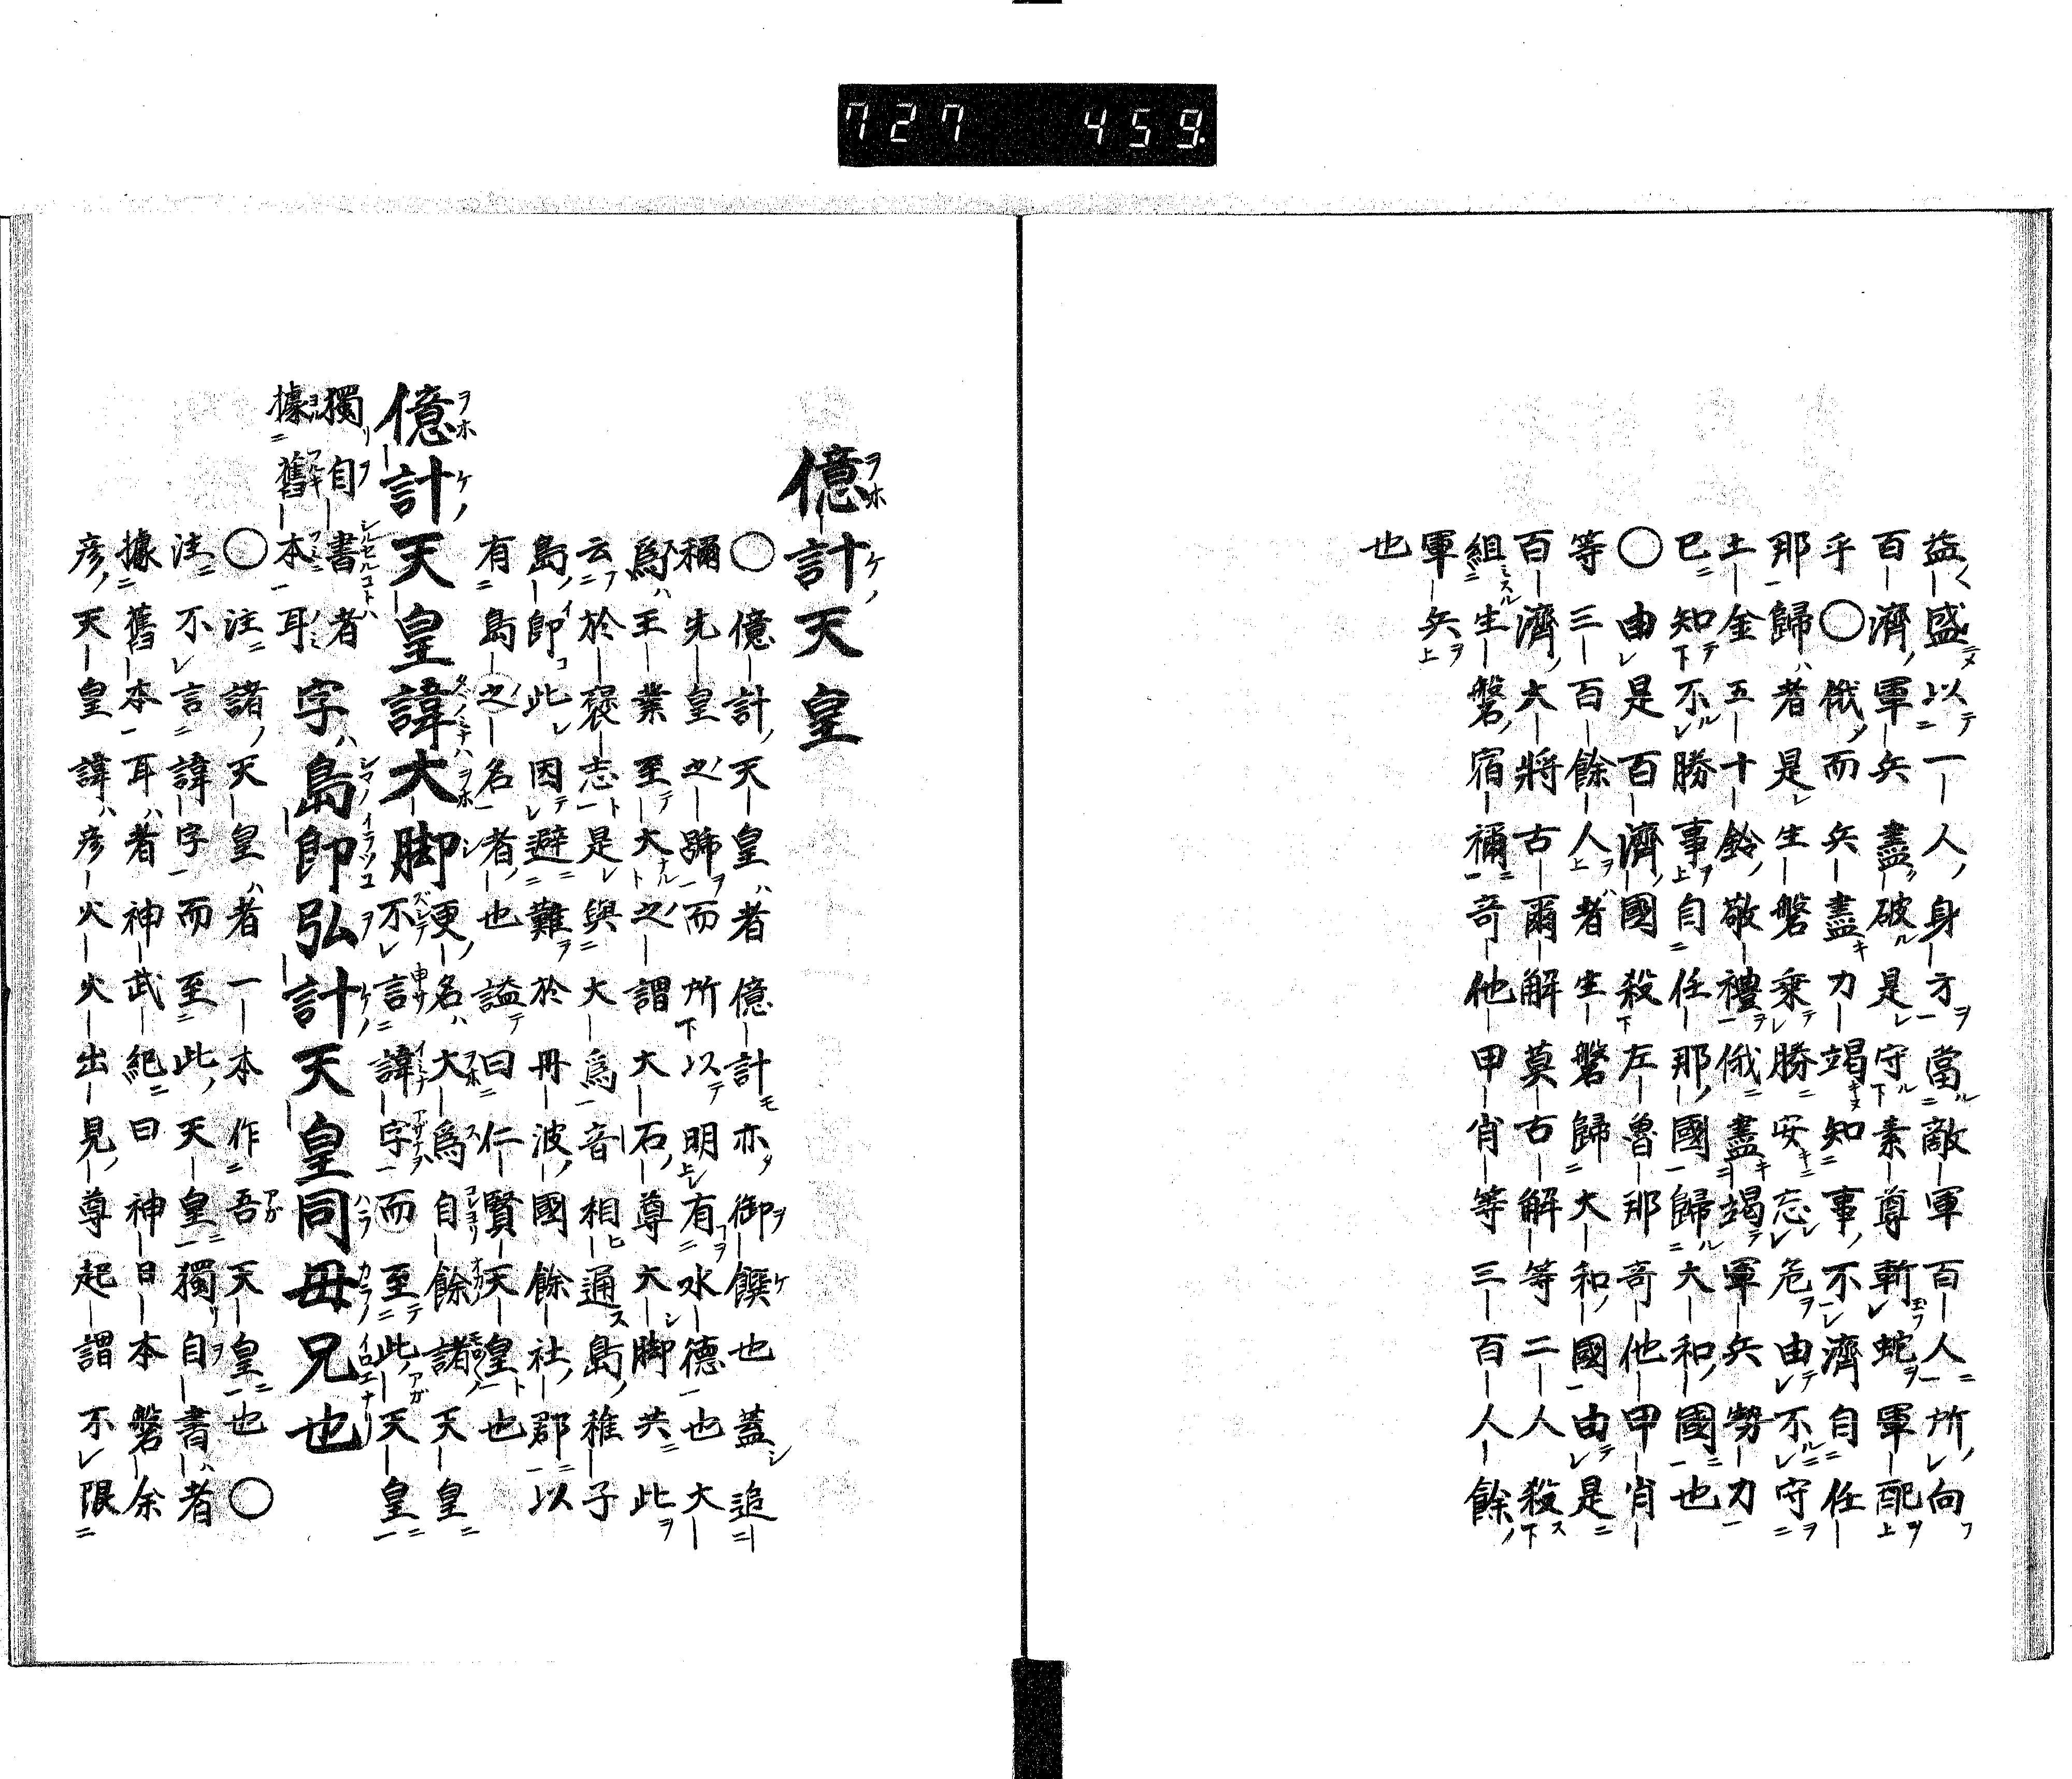 727 459.
益盛以一人身方當敵軍百人所向
百濟軍兵盡破是守素尊斬蛇軍配
乎○俄而兵盡力竭知事不濟自任
那歸者是生磐乗勝安忘危由不守
土金五十鈴敬禮俄盡竭軍兵勢力
已知不勝事自任那國歸大和國也
○由是百濟國殺左魯那奇他甲肖
等三百餘人者生磐歸大和國由是
百濟大將古爾解莫古解等二人殺
組生磐宿禰奇他甲肖等三百人餘
軍兵
也
億計天皇
○億計天皇者億計亦御饌也蓋追
稱先皇之號而所以明有水德也大
爲王業至大之謂大石尊大脚共此
云於褒志是與大爲音相通島稚子
島郎此因避難於丹波國餘社郡以
有島之名者也謚曰仁賢天皇也
億計天皇諱大脚更名大爲自餘諸天皇
不言諱字而至此天皇
獨自書者
據舊本耳字島郎弘計天皇同母兄也
○注諸天皇者一本作吾天皇也○
注不言諱字而至此天皇獨自書者
據舊本耳者神武紀曰神日本磐余
彦天皇諱彦火火出見尊起謂不限